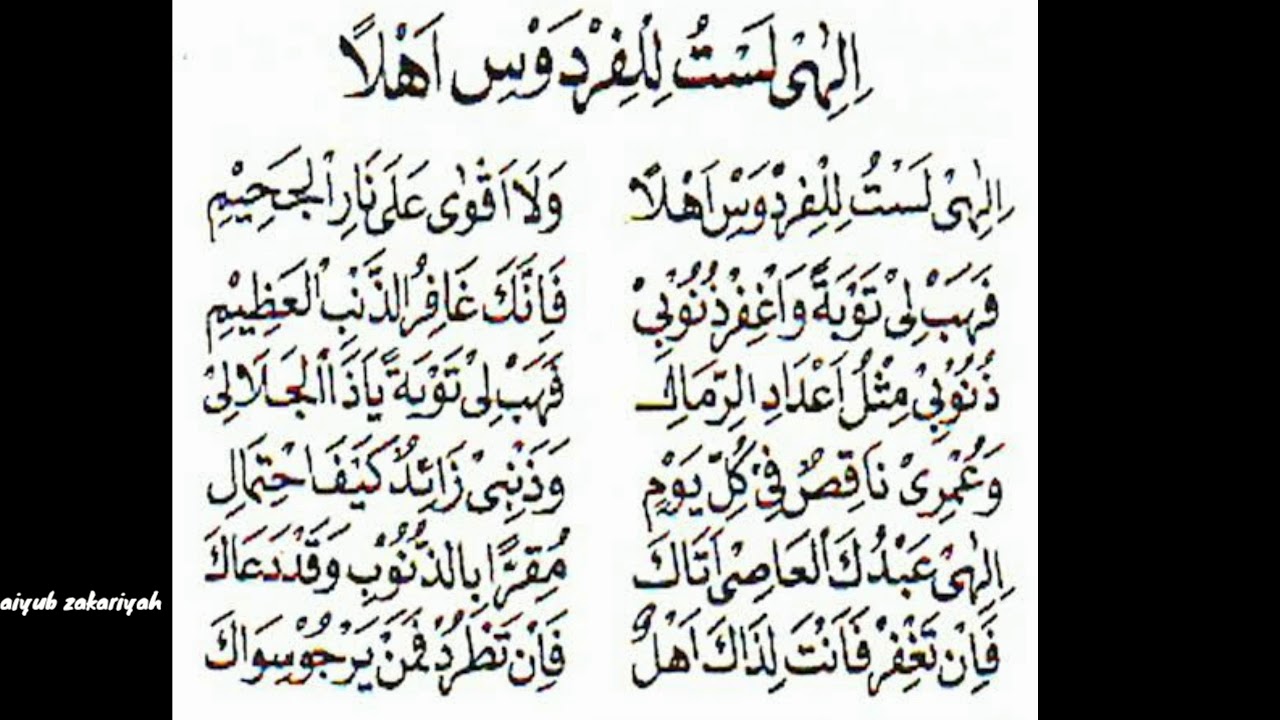 اِلٰهِىْ لَسْتُ لِلْفِرْدَوْسِ اَهْلًا
اِلٰهِىْ لَسْتُ لِلْفِرْدَوْسِ اَهْلًا وَلَا اَقْوٰى عَلَى نَارِ الْجَحِيْمِ
فَهَبْ لِىْ تَوْبَةً وَاغْفِرْ ذُنُوْبِىْ فَاِنَّكَ غَافِرُ الذَّنْبِ الْعَظِيْمِ
ذُنُوْبِىْ مِثْلُ اَعْدَادِ الرِّمَالِ فَهَبْ لِىْ تَوْبَةً يَاذَا الْجَلَالِىْ
وَعُمْرِىْ نَاقِصٌ فِىْ كُلِّ يَوْمٍ وَذَنْبِىْ زَائِدٌ كَيْفَ احْتِمَالِ
اِلٰهِىْ عَبْدُكَ الْعَاصِىْ اَتَاكَ مُقِرًّا بِالذُّنُوْبِ وَقَدْ دَعَاكَ
فَاِنْ تَغْفِرْ فَاَنْتَ لِذَاكَ اَهْلٌ فَاِنْ تَطْرُدْ فَمَنْ يَرْجُوْ سِوَاكَ
aiyub zakariyah